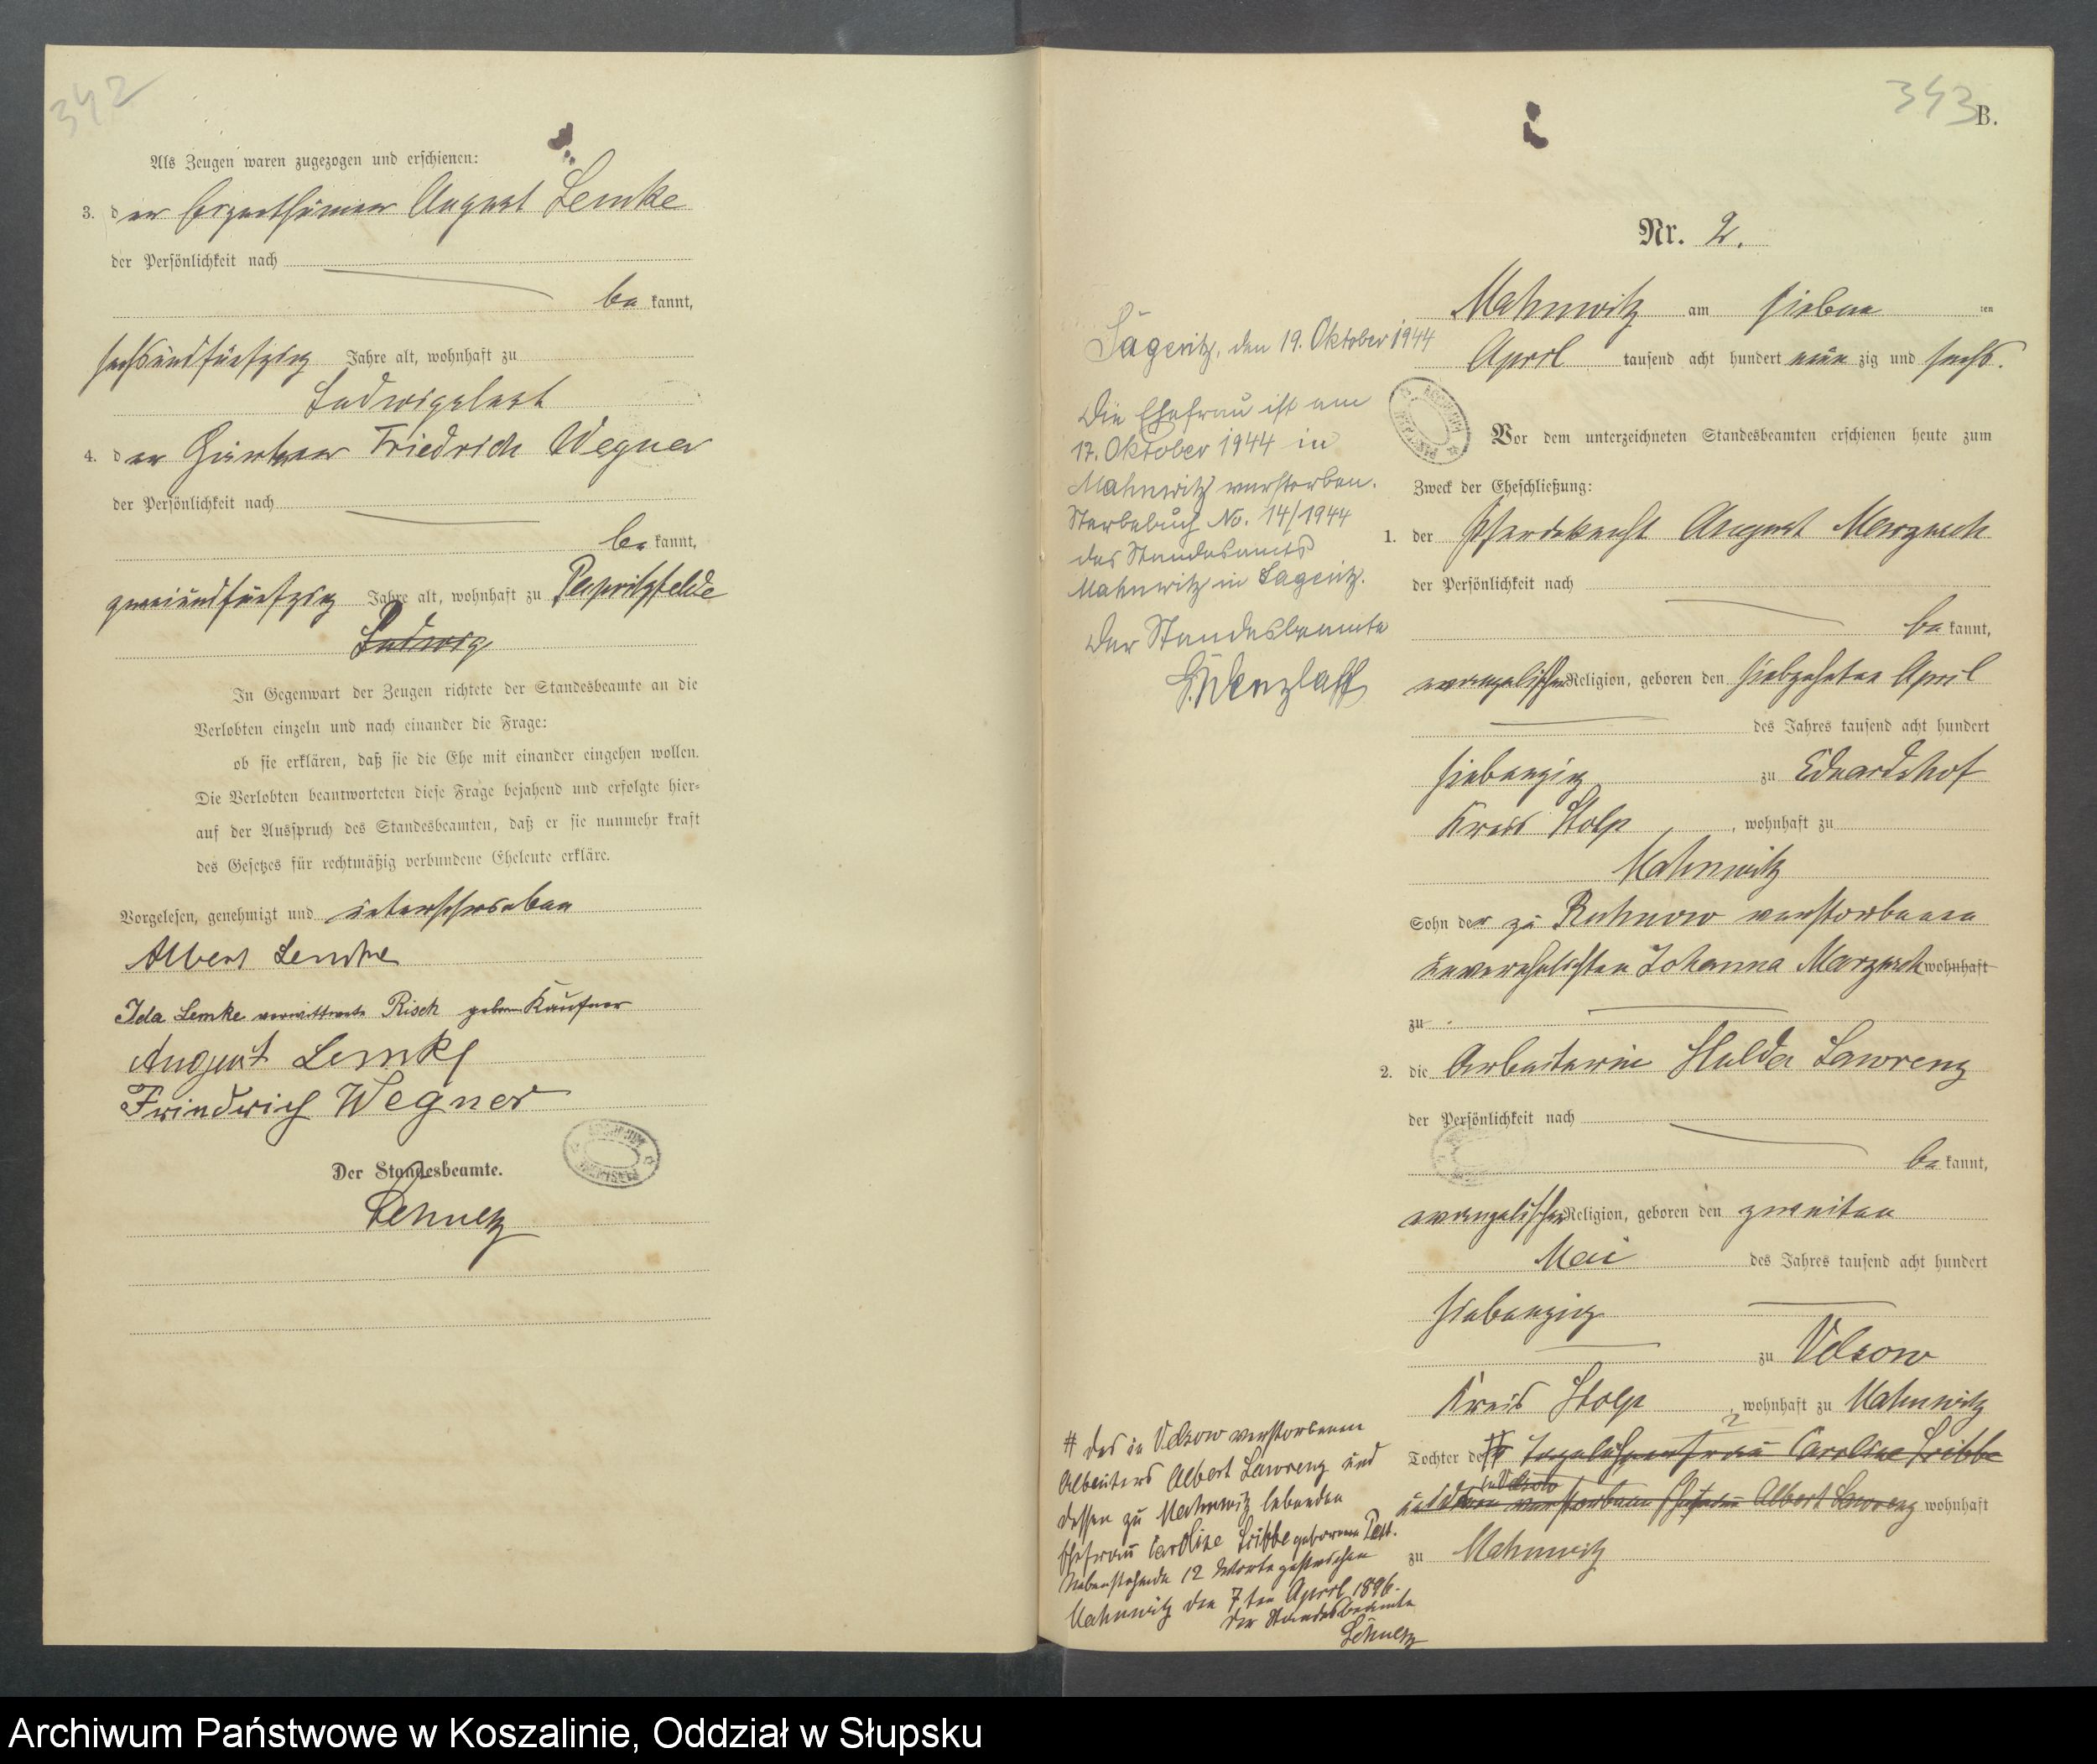 342
Als Zeugen waren zugezogen und erschienen:
3. der Eigenthümer August Lemke
der Persönlichkeit nach
be kannt,
sechsundfünfzig Jahre alt, wohnhaft zu
Ludwigslust
4. der Gärtner Friedrich Wegner
der Persönlichkeit nach
be kannt,
zweiundfünfzig Jahre alt, wohnhaft zu
Ludwig
In Gegenwart der Zeugen richtete der Standesbeamte an die
Verlobten einzeln und nach einander die Frage:
ob sie erklären, daß sie die Ehe mit einander eingehen wollen.
Die Verlobten beantworteten diese Frage bejahend und erfolgte hier-
auf der Ausspruch des Standesbeamten, daß er sie nunmehr kraft
des Gesetzes für rechtmäßig verbundene Eheleute erkläre.
Vorgelesen, genehmigt und unterschrieben
Albert Lemke
Ida Lemke verwittwete Risch geborene Käufner
August Lemke
Friedrich Wegner
Der Standesbeamte.
Schulz
343
B.
Nr. 2.
Mahnwitz am sieben ten
April tausend acht hundert neun zig und sechs.
Vor dem unterzeichneten Standesbeamten erschienen heute zum
Zweck der Eheschließung:
1. der Pferdeknecht August Marzusch
der Persönlichkeit nach
be kannt,
evangelischer Religion, geboren den siebzehnten April
des Jahres tausend acht hundert
siebenzig zu Eduardshof
Kreis Stolp, wohnhaft zu
Mahnwitz
Sohn der zu Ruhnow verstorbenen
unverehelichten Johanna Marzusch wohnhaft
zu
2. die Arbeiterin Hulda Lawrenz
der Persönlichkeit nach
be kannt,
evangelischer Religion, geboren den zweiten
Mai des Jahres tausend acht hundert
siebenzig
zu Velsow
Kreis Stolp, wohnhaft zu Mahnwitz
Tochter der Caroline Tribbe
in Velsow
verstorbenen Albert Lawrenz wohnhaft
zu Mahnwitz
Sageritz, den 19. Oktober 1944
Die Ehefrau ist am
17. Oktober 1944 in
Mahnwitz verstorben.
Sterbebuch No. 14/1944
des Standesamts
Mahnwitz in Sageritz.
Der Standesbeamte
Wenzlaff
# des in Velsow verstorbenen
Arbeiters Albert Lawrenz und
dessen zu Mahnwitz lebenden
Ehefrau Caroline Tribbe geborenen
Nebenstehende 12 Worte gestrichen
Mahnwitz den 7ten April 1896.
Der Standesbeamte
Schulz
Archiwum Państwowe w Koszalinie, Oddział w Słupsku